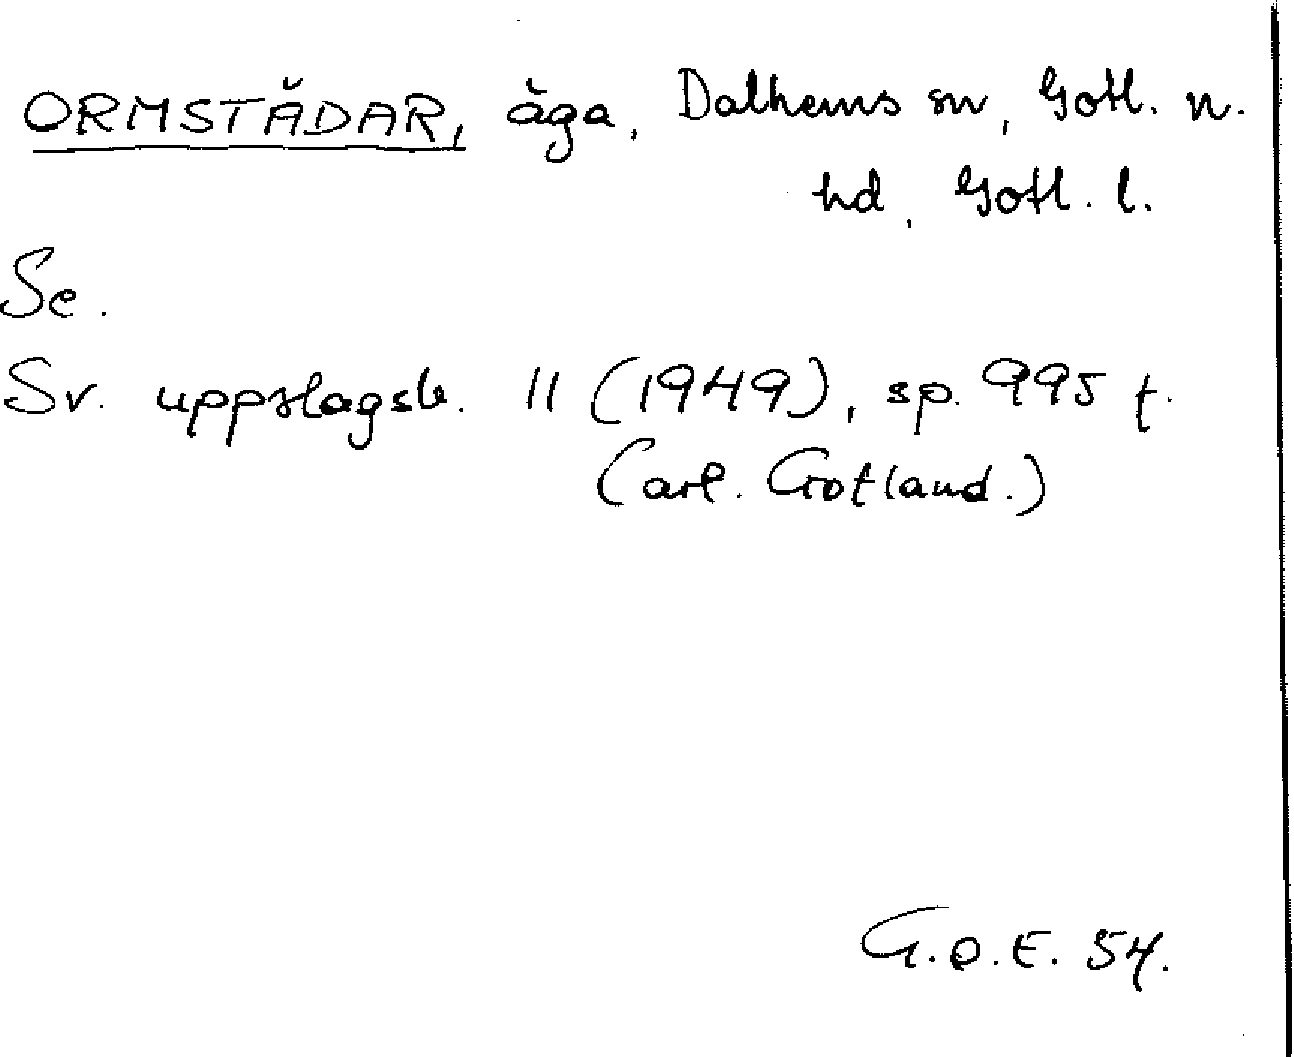 ORMSTÄDAR, äga, Dalhems sn, Gotl. n.
hd, Gotl. l.
Se.
Sv. uppslagsb. 11 (1949), sp. 995 f.
(art. Gotland.)
G.O.E. 54.